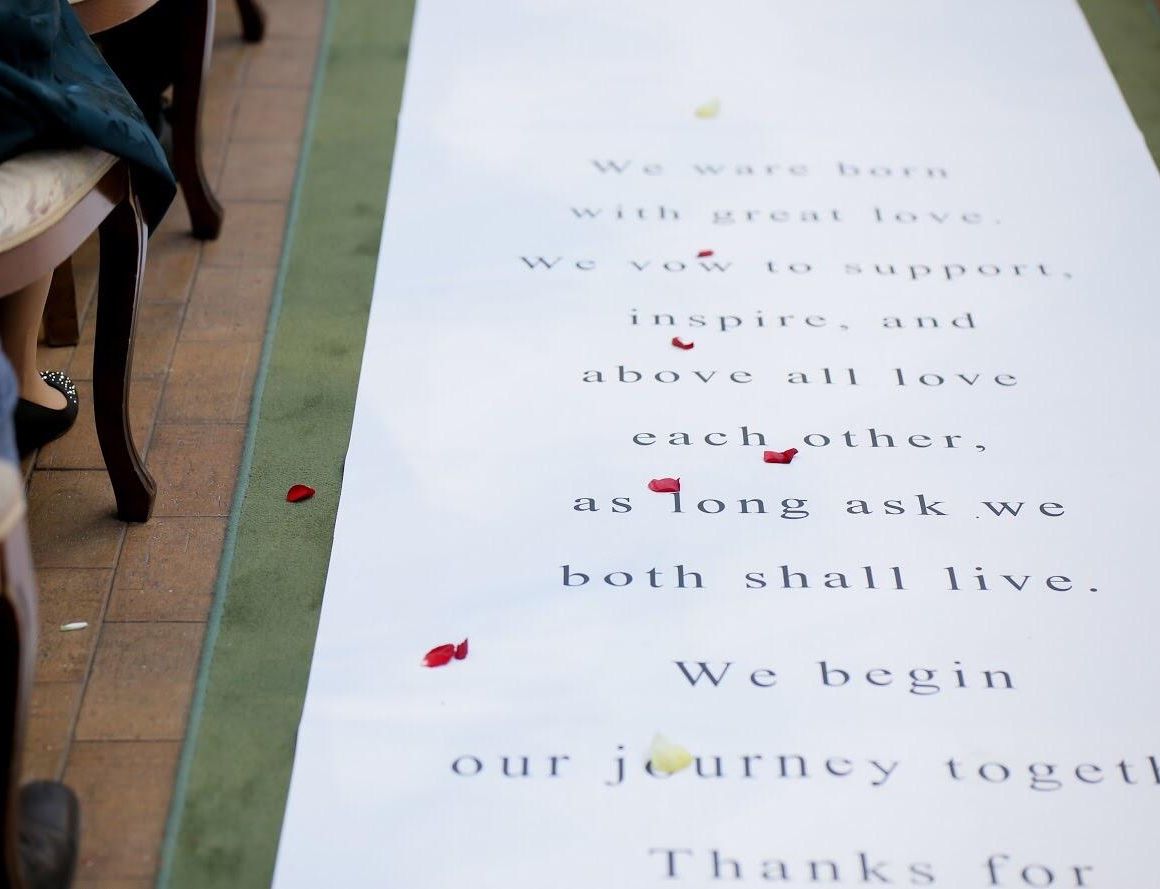 We ware born
with great love.
We vow to support,
inspire, and
above all love
each other,
as long ask we
both shall live.
We begin
our journey togeth
Thanks for